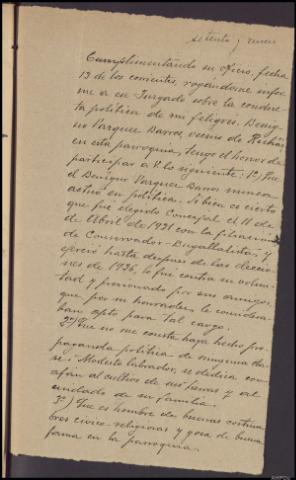 setenta y nueve
Cumplimentando su oficio, fecha
13 de los corrientes, rogándome infor-
me a ese Juzgado sobre la conduc-
ta política de mi feligrés, Benig-
no Vazquez Barros vecino de
en esta parroquia, tengo el honor de
participar a V. lo siguiente: 1º) Que
el Benigno Vazquez Barros nunca
actuó en política. Si bien es cierto
que fué elegido Concejal el 11 de
de Abril de 1931 con la filiación
de Conservador-Bugallalista, y
ejerció hasta despues de las eleccio-
nes de 1936, lo fué contra su volun-
tad y presionado por sus amigos,
que por su honradez le considera-
ban apto para tal cargo.
2º) Que no me consta haya hecho pro-
paganda política de ninguna cla-
se. Modesto labrador, se dedica con
afán al cultivo de sus tierras y al
cuidado de su familia.
3º) Que es hombre de buenas costum-
bres cívico-religiosas y goza de buena
fama en la parroquia.